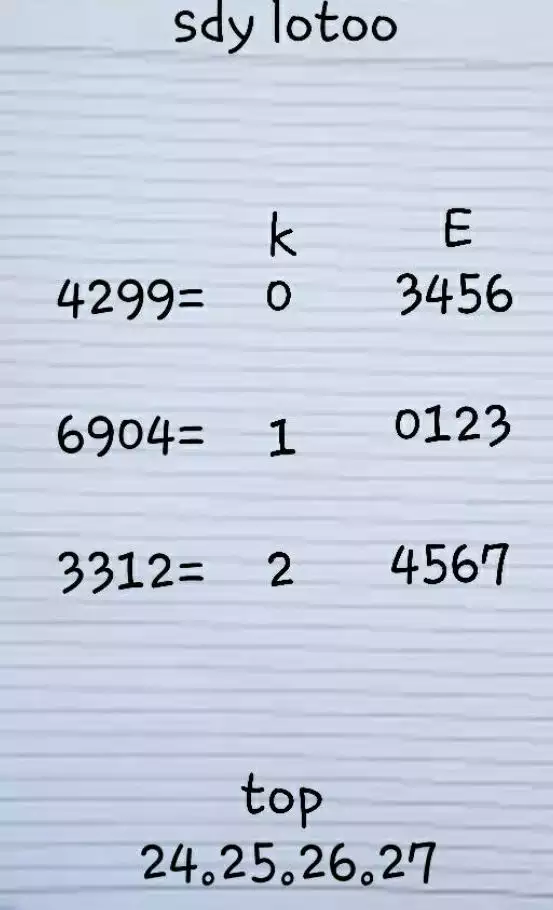 sdy lotoo
k E
4299= 0 3456
6904= 1 0123
3312= 2 4567
top
24.25.26.27